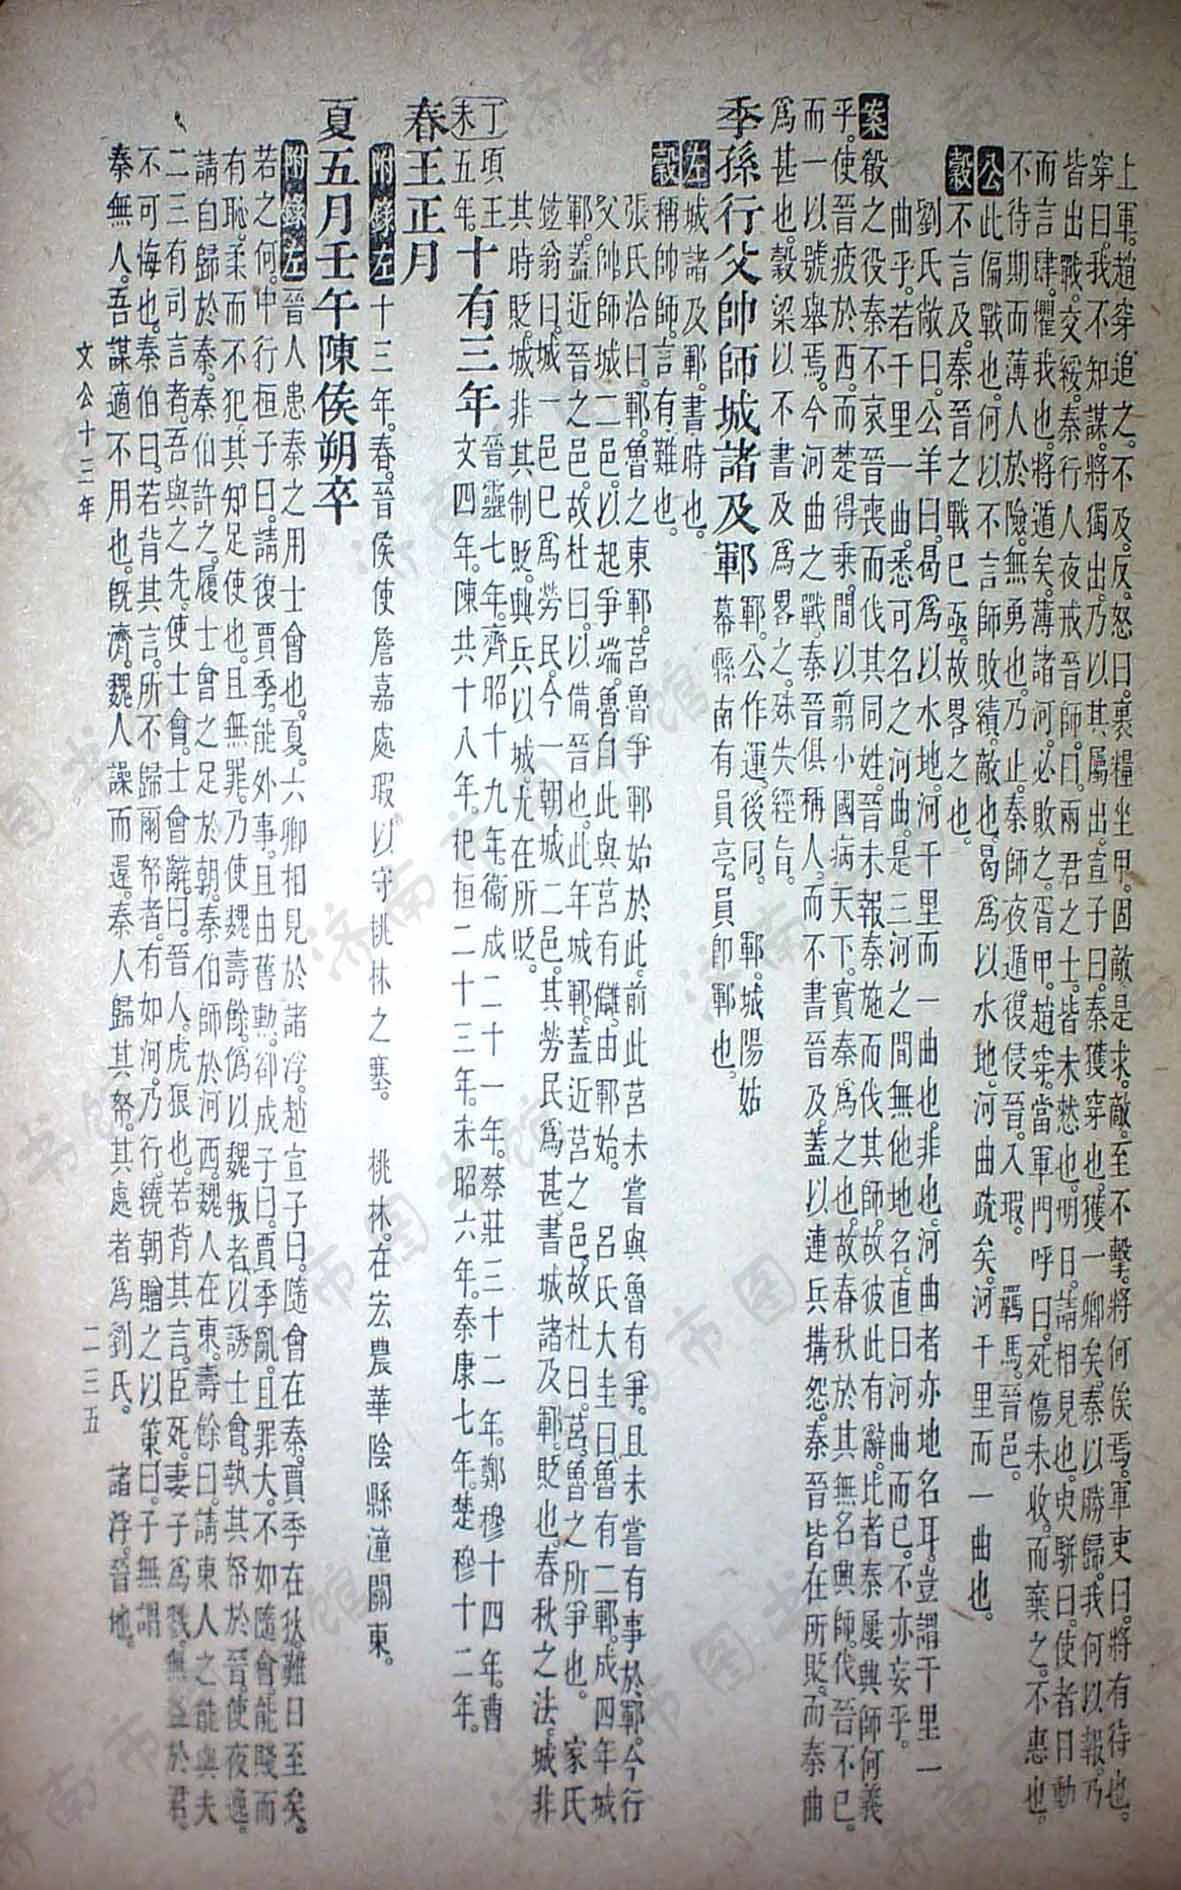 上軍。趙穿追之。不及。反。怒曰。裹糧坐甲。固敵是求。敵至不擊。將何俟焉。軍吏曰。將有待也。
穿曰。我不知謀。將獨出。乃以其屬出。宣子曰。秦獲穿也。獲一卿矣。秦以勝歸。我何以報。乃
皆出戰。交綏。秦行人夜戒晉師。曰。兩君之士。皆未憖也。明日請相見也。臾騈曰。使者目動
而言肆。懼我也。將遁矣。薄諸河。必敗之。胥甲。趙穿。當軍門呼曰。死傷未收。而棄之。不惠也。
不待期而薄人於險。無勇也。乃止。秦師夜遁。復侵晉。入瑕。 羈馬。晉邑。
公此偏戰也。何以不言師敗績。敵也。曷爲以水地。河曲疏矣。河千里而一曲也。
穀不言及。秦晉之戰已亟。故畧之也。
劉氏敞曰。公羊曰。曷爲以水地。河千里而一曲也。非也。河曲者亦地名耳。豈謂千里一
曲乎。若千里一曲。悉可名之河曲。是三河之間無他地名。直曰河曲而已。不亦妄乎。
案殽之役。秦不哀晉喪而伐其同姓。晉未報秦施而伐其師。故彼此有辭。比者秦屢興師。何義
乎。使晉疲於西。而楚得乘間以翦小國。病天下。實秦爲之也。故春秋於其無名興師。伐晉不已。
而一以號舉焉。今河曲之戰。秦晉俱稱人。而不書晉及。蓋以連兵搆怨。秦晉皆在所貶。而秦曲
爲甚也。穀梁以不書及爲畧之。殊失經旨。
季孫行父帥師城諸及鄆 鄆。公作運。後同。 鄆。城陽姑
幕縣南有員亭。員卽鄆也。
左城諸及鄆。書時也。
穀稱帥師。言有難也。
張氏洽曰。鄆。魯之東鄆。莒魯爭鄆始於此。前此莒未嘗與魯有爭。且未嘗有事於鄆。今行
父帥師城二邑。以起爭端。魯自此與莒有讎。由鄆始。 呂氏大圭曰。魯有二鄆。成四年城
鄆。蓋近晉之邑。故杜曰。以備晉也。此年城鄆。蓋近莒之邑。故杜曰。莒魯之所爭也。 家氏
鉉翁曰。城一邑已爲勞民。今一朝城二邑。其勞民爲甚。書城諸及鄆。貶也。春秋之法。城非
其時貶。城非其制貶。興兵以城。尤在所貶。
丁未 項王五年。 十有三年 晉靈七年。齊昭十九年。衞成二十一年。蔡莊三十二年。鄭穆十四年。曹
文四年。陳共十八年。杞桓二十三年。宋昭六年。秦康七年。楚穆十二年。
春王正月
附錄左十三年。春。晉侯使詹嘉處瑕。以守桃林之塞。 桃林。在宏農華陰縣潼關東。
夏五月壬午陳侯朔卒
附錄左晉人患秦之用士會也。夏。六卿相見於諸浮。趙宣子曰。隨會在秦。賈季在狄。難日至矣。
若之何。中行桓子曰。請復賈季。能外事。且由舊勳。卻成子曰。賈季亂。且罪大。不如隨會。能賤而
有恥。柔而不犯。其知足使也。且無罪。乃使魏壽餘。僞以魏叛者。以誘士會。執其帑於晉。使夜逸。
請自歸於秦。秦伯許之。履士會之足於朝。秦伯師於河西。魏人在東。壽餘曰。請東人之能與夫
二三有司言者。吾與之先。使士會。士會辭曰。晉人。虎狼也。若背其言。臣死。妻子爲戮。無益於君。
不可悔也。秦伯曰。若背其言。所不歸爾帑者。有如河。乃行。繞朝贈之以策。曰。子無謂
秦無人。吾謀適不用也。旣濟。魏人譟而還。秦人歸其帑。其處者爲劉氏。 諸浮。晉地。
文公十三年 二三五